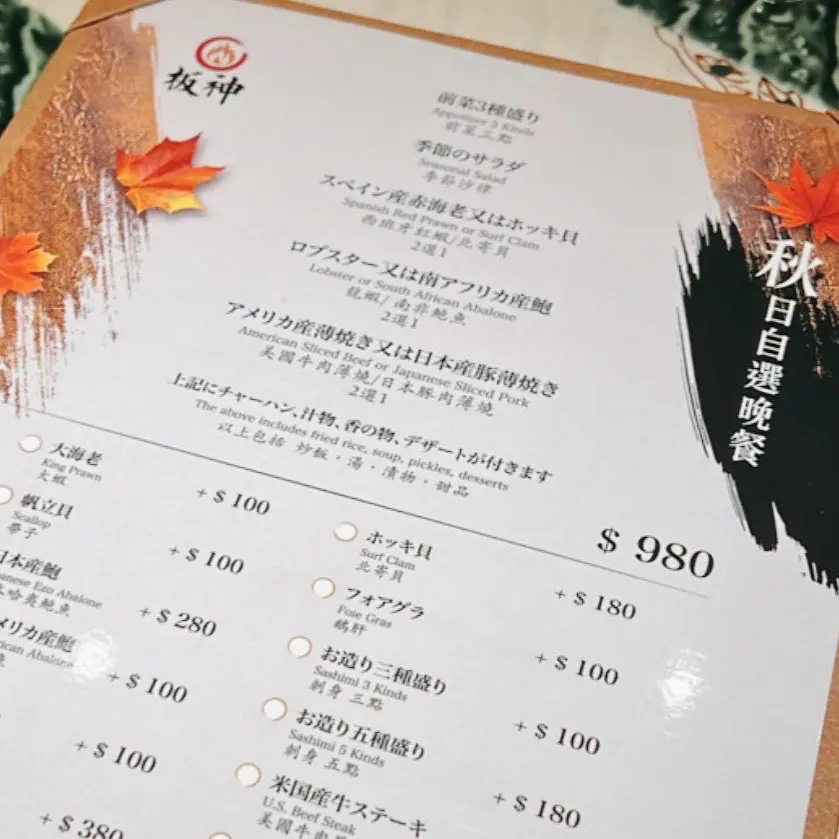 板神
前菜3種盛り
Appetizer 3 Kinds
前菜三點
季節のサラダ
Seasonal Salad
季節沙律
スペイン産赤海老又はホッキ貝
Spanish Red Prawn or Surf Clam
西班牙紅蝦/北寄貝
2選1
ロブスター又は南アフリカ産鮑
Lobster or South African Abalone
龍蝦/南非鮑魚
2選1
アメリカ産薄焼き又は日本産豚薄焼き
American Sliced Beef or Japanese Sliced Pork
美國牛肉薄燒/日本豚肉薄燒
2選1
上記にチャーハン、汁物、香の物、デザートが付きます
The above includes fried rice, soup, pickles, desserts
以上包括 炒飯，湯，漬物，甜品
秋日自選晚餐
$ 980
大海老 + $ 100
King Prawn
大蝦
帆立貝 + $ 100
Scallop
帶子
日本産鮑 + $ 280
Ezo Abalone
哈夷鮑魚
メリカ産鮑 + $ 100
Abalone
+ $ 100
+ $ 380
ホッキ貝 + $ 180
Surf Clam
北寄貝
フォアグラ + $ 100
Foie Gras
鵝肝
お造り三種盛り + $ 100
Sashimi 3 Kinds
刺身 三點
お造り五種盛り + $ 180
Sashimi 5 Kinds
刺身 五點
米国産牛ステーキ
U.S. Beef Steak
美國牛肉